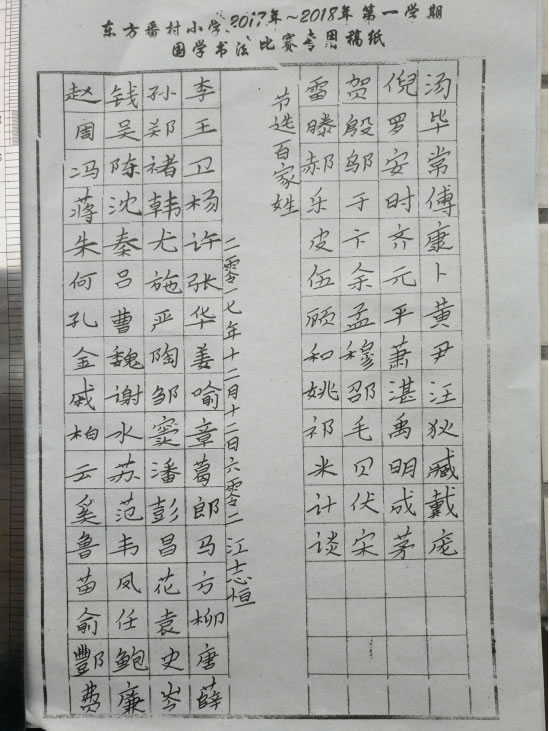 东方番村小学2017年~2018年第一学期
国学书法比赛专用稿纸
赵钱孙李
周吴郑王
冯陈褚卫
蒋沈韩杨
朱秦尤许
何吕施张
孔曹严华
金魏陶姜
戚谢邹喻
柏水窦章
云苏潘葛
奚范彭郎
鲁韦昌马
苗凤花方
俞任袁柳
酆鲍史唐
费廉岑薛
二零一七年十二月十二日六零二江志恒
节选百家姓
雷贺倪汤
滕殷罗毕
郝邬安常
乐于时傅
皮卞齐康
伍余元卜
顾孟平黄
和穆萧尹
姚邵湛汪
祁毛禹狄
米贝明臧
计伏成戴
谈宋茅庞